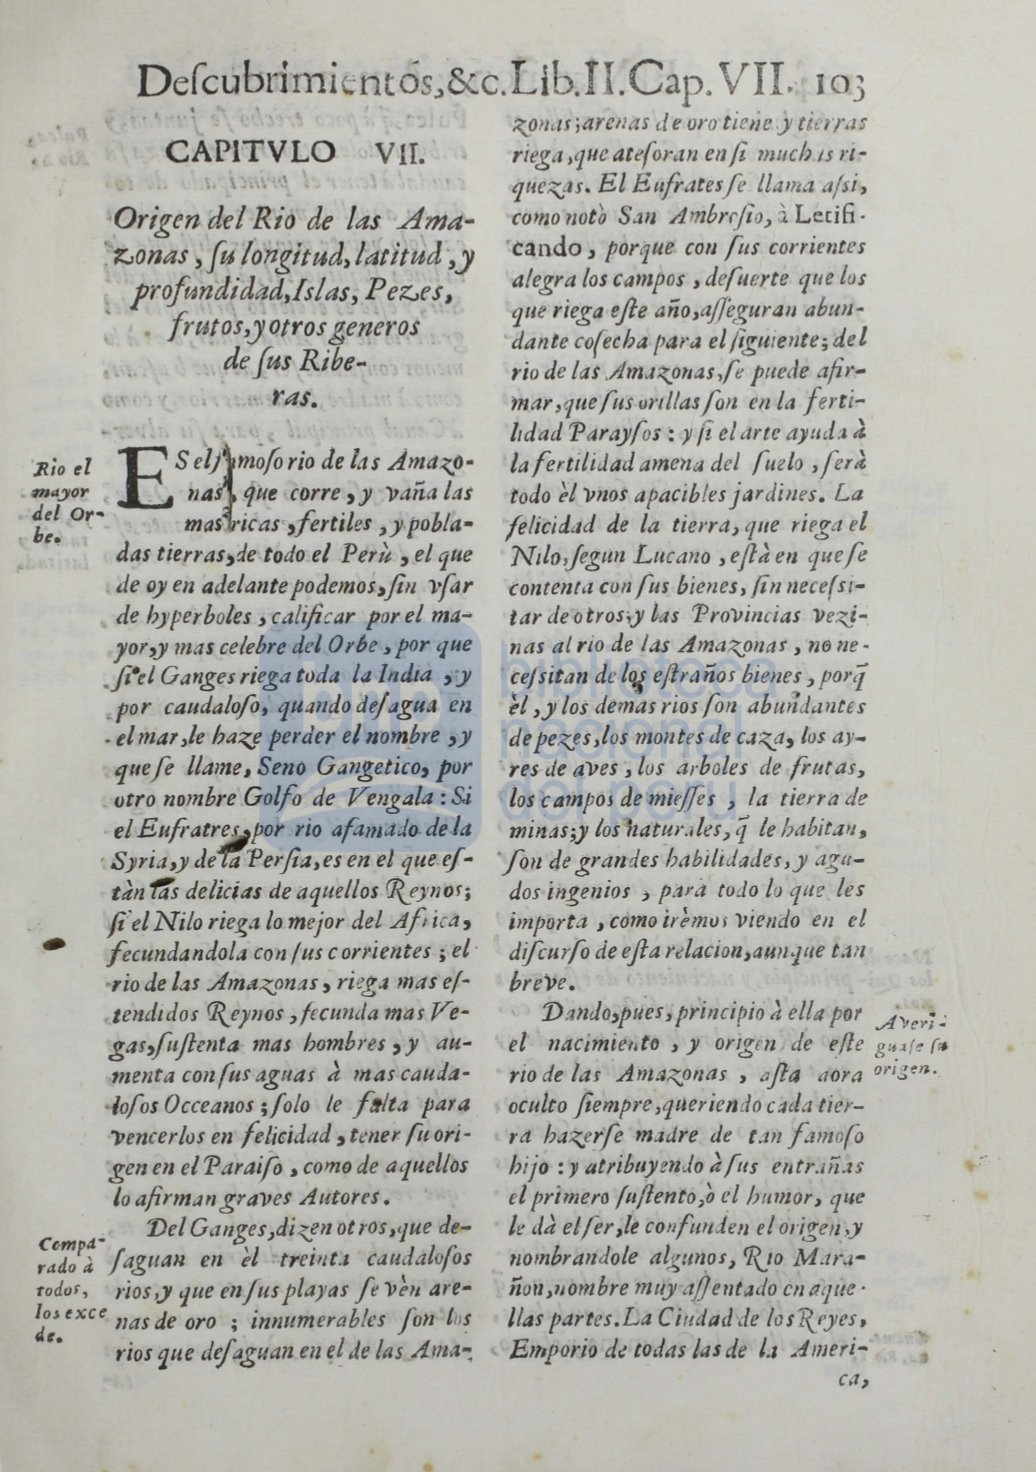 Deſcubrimientos, &c. Lib. II. Cap. VII. 103
CAPITVLO VII.
Origen del Rio de las Ama-
zonas, ſu longitud, latitud, y
profundidad, Islas, Pezes,
frutos, y otros generos
de ſus Ribe-
ras.
Rio el
mayor
del Or-
be.
ES el famoſo rio de las Amazo-
nas, que corre, y vaña las
mas ricas, fertiles, y pobla-
das tierras, de todo el Perù, el que
de oy en adelante podemos, ſin vſar
de hyperboles, calificar por el ma-
yor, y mas celebre del Orbe, por que
ſi el Ganges riega toda la India, y
por caudaloſo, quando deſagua en
el mar, le haze perder el nombre, y
que ſe llame, Seno Gangetico, por
otro nombre Golfo de Vengala: Si
el Eufratres, por rio afamado de la
Syria, y de la Perſia, es en el que eſ-
tàn las delicias de aquellos Reynos;
ſi el Nilo riega lo mejor del Africa,
fecundandola con ſus corrientes; el
rio de las Amazonas, riega mas eſ-
tendidos Reynos, fecunda mas Ve-
gas, ſuſtenta mas hombres, y au-
menta con ſus aguas à mas cauda-
loſos Occeanos; ſolo le falta para
vencerlos en felicidad, tener ſu ori-
gen en el Paraiſo, como de aquellos
lo afirman graves Autores.
Compa-
rado à
todos,
los exce
de.
Del Ganges, dizen otros, que de-
ſaguan en èl treinta caudaloſos
rios, y que en ſus playas ſe vèn are-
nas de oro; innumerables ſon los
rios que deſaguan en el de las Ama-
zonas; arenas de oro tiene y tierras
riega, que ateſoran en ſi muchas ri-
quezas. El Eufrates ſe llama aſsi,
como notò San Ambroſio, à Letifi-
cando, porque con ſus corrientes
alegra los campos, deſuerte que los
que riega eſte año, aſſeguran abun-
dante coſecha para el ſiguiente; del
rio de las Amazonas, ſe puede afir-
mar, que ſus orillas ſon en la ferti-
lidad Parayſos: y ſi el arte ayuda à
la fertilidad amena del ſuelo, ſerà
todo èl vnos apacibles jardines. La
felicidad de la tierra, que riega el
Nilo, ſegun Lucano, eſtà en que ſe
contenta con ſus bienes, ſin neceſsi-
tar de otros; y las Provincias vezi-
nas al rio de las Amazonas, no ne-
ceſsitan de los eſtraños bienes, porq̃
èl, y los demas rios ſon abundantes
de pezes, los montes de caza, los ay-
res de aves, los arboles de frutas,
los campos de mieſſes, la tierra de
minas; y los naturales, q̃ le habitan,
ſon de grandes habilidades, y agu-
dos ingenios, para todo lo que les
importa, como irèmos viendo en el
diſcurſo de eſta relacion, aunque tan
breve.
Averi-
guaſe ſu
origen.
Dando, pues, principio à ella por
el nacimiento, y origen de eſte
rio de las Amazonas, aſta aora
oculto ſiempre, queriendo cada tier-
ra hazerſe madre de tan famoſo
hijo: y atribuyendo à ſus entrañas
el primero ſuſtento, ò el humor, que
le dà el ſer, le confunden el origen, y
nombrandole algunos, Rio Mara-
ñon, nombre muy aſſentado en aque-
llas partes. La Ciudad de los Reyes,
Emporio de todas las de la Ameri-
ca,
biblioteca
nacional
del perú